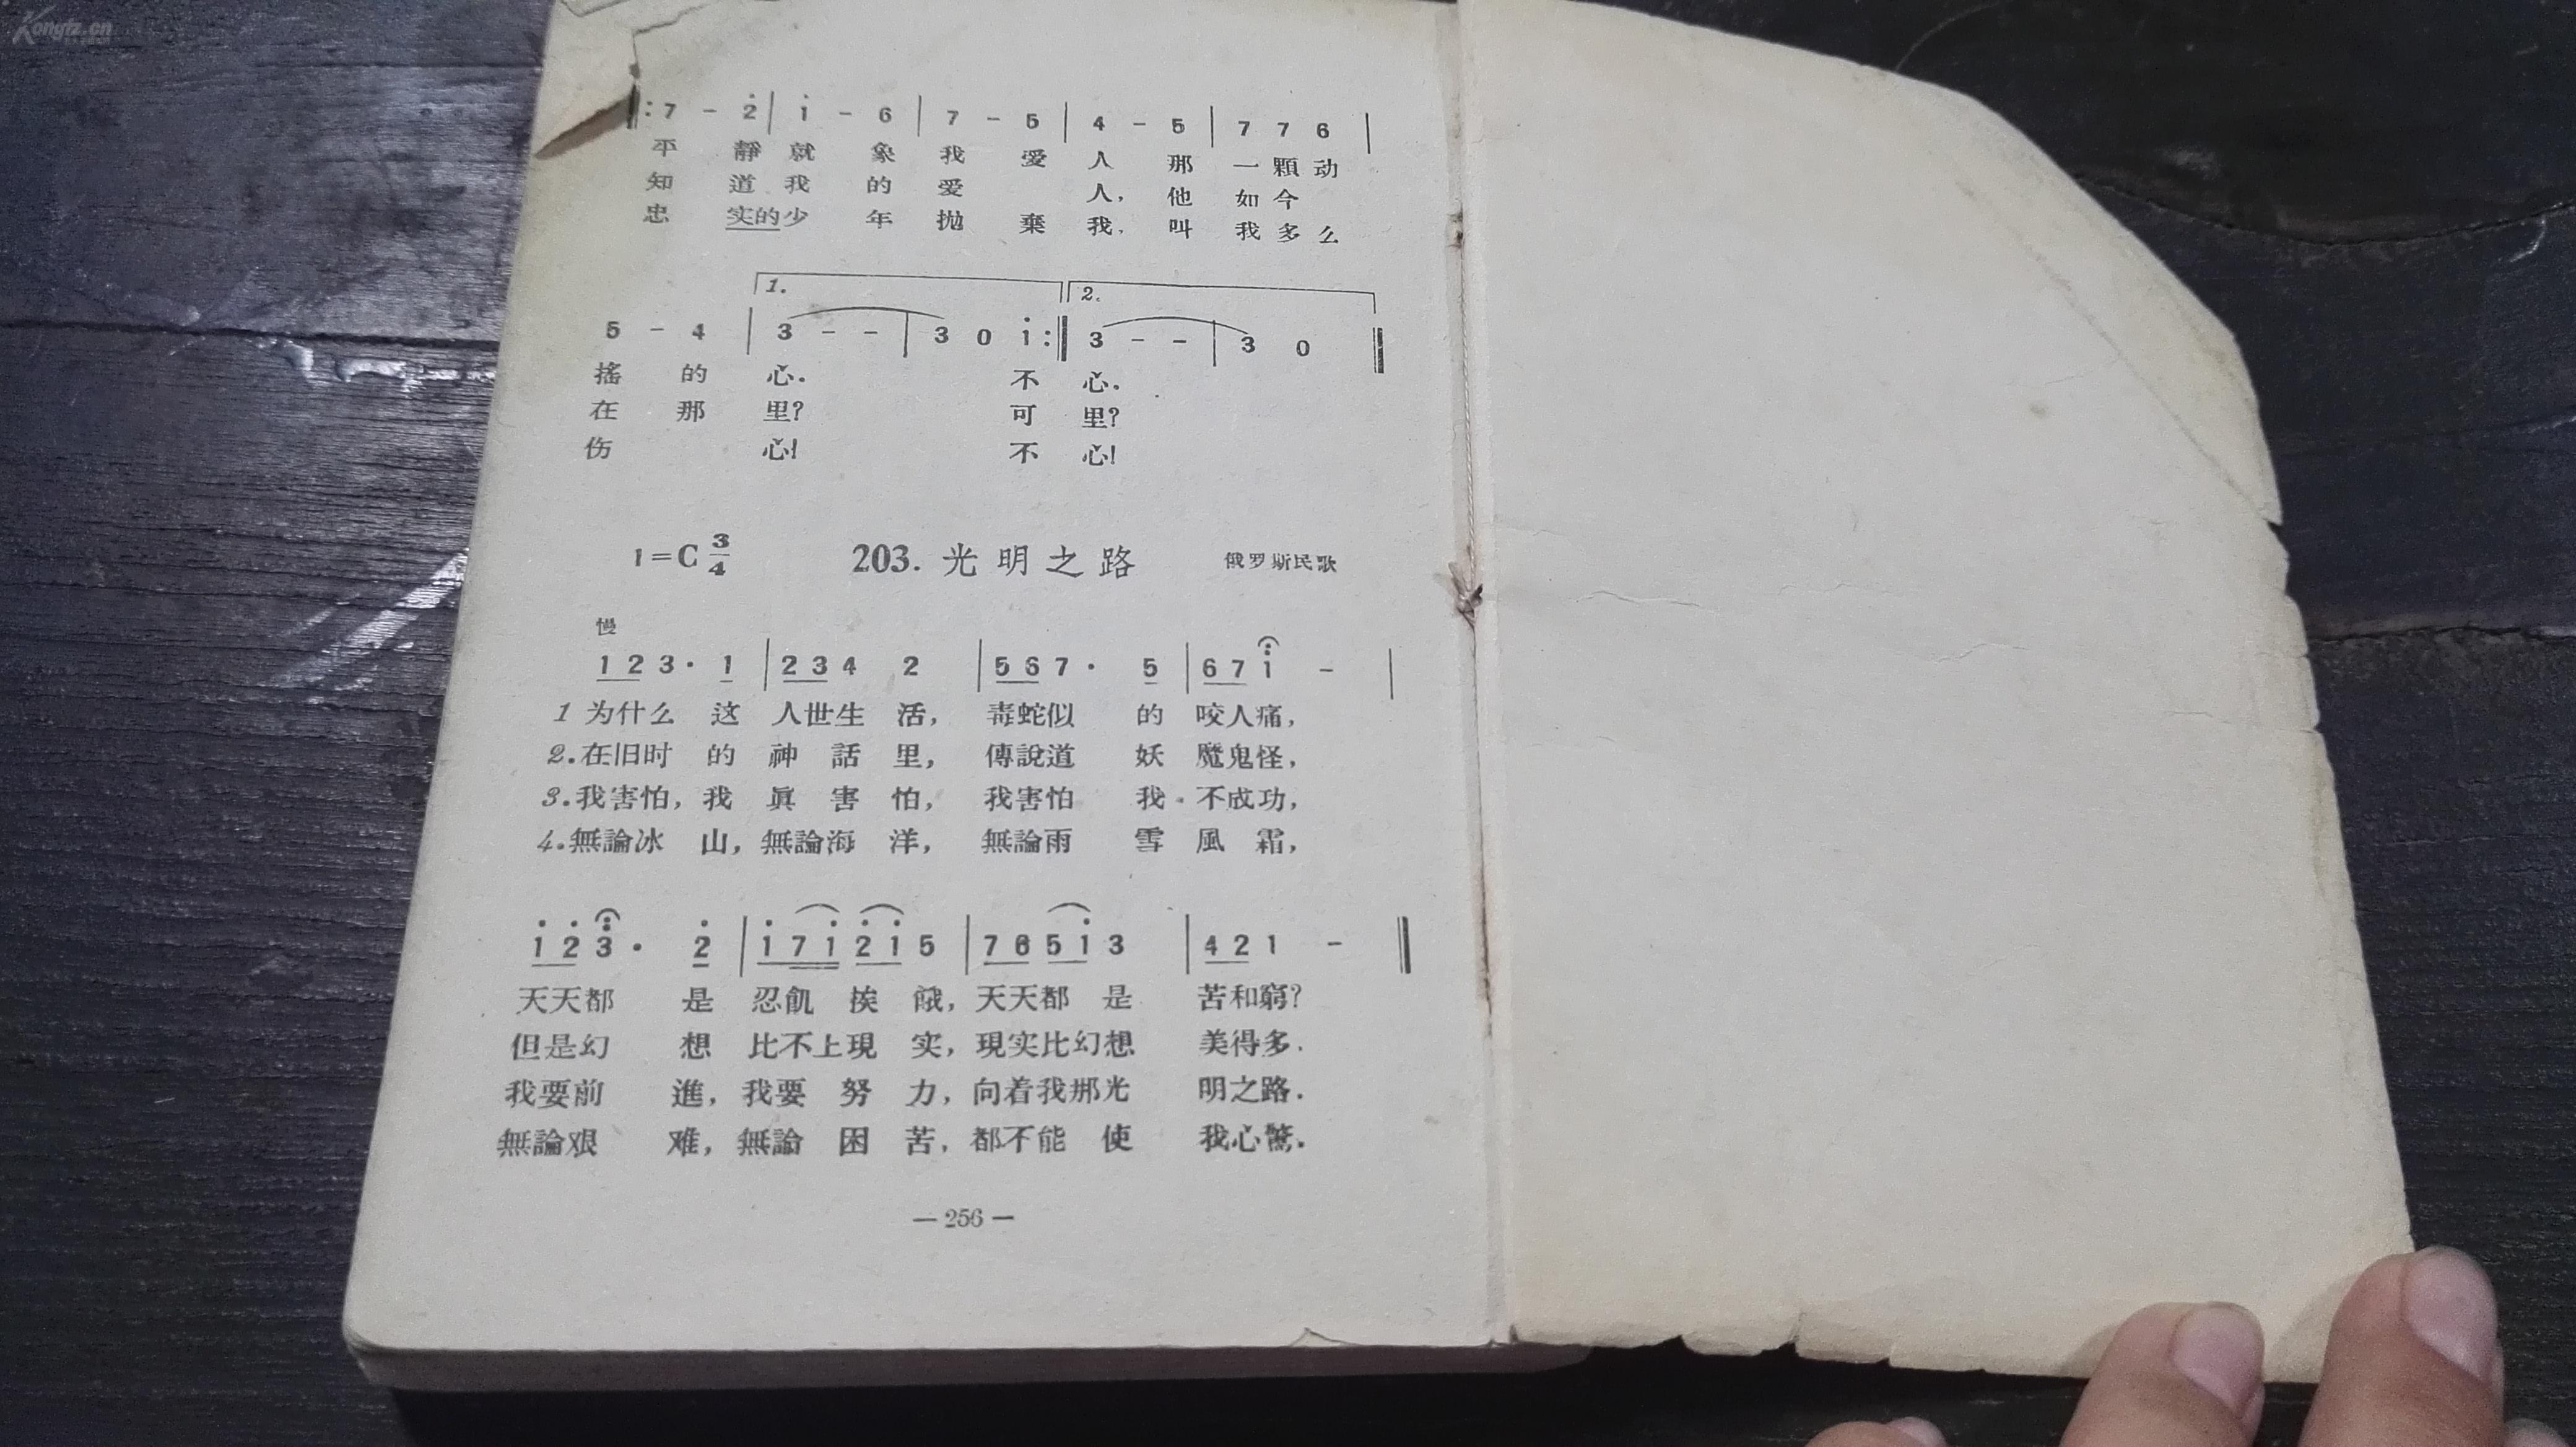 Kongfz.cn
‖: 7 - 2̇ | 1̇ - 6 | 7 - 5 | 4 - 5 | 7 7 6 |
平 靜 就 象 我 愛 人 那 一 顆 动
知 道 我 的 愛 人, 他 如 今
忠 实的 少 年 抛 棄 我, 叫 我 多 么
1. 2.
5 - 4 | 3 - - | 3 0 1̇ :‖ 3 - - | 3 0 ‖
搖 的 心. 不 心.
在 那 里? 可 里?
伤 心! 不 心!
1=C 3/4 203. 光明之路 俄罗斯民歌
慢
1 2 3· 1 | 2 3 4 2 | 5 6 7· 5 | 6 7 1̇ - |
1 为什么 这 人世生 活, 毒蛇似 的 咬人痛,
2.在旧时 的 神 話 里, 傳說道 妖 魔鬼怪,
3.我害怕, 我 眞 害 怕, 我害怕 我 不成功,
4.無論冰 山, 無論海 洋, 無論雨 雪 風 霜,
1̇ 2̇ 3̇· 2̇ | 1̇ 7 1̇ 2̇ 1̇ 5 | 7 6 5 1̇ 3 | 4 2 1 - ‖
天天都 是 忍飢 挨 餓, 天天都 是 苦和窮?
但是幻 想 比不上現 实, 現实比幻想 美得多.
我要前 進, 我要 努 力, 向着我那光 明之路.
無論艰 难, 無論 困 苦, 都不能 使 我心驚.
— 256 —